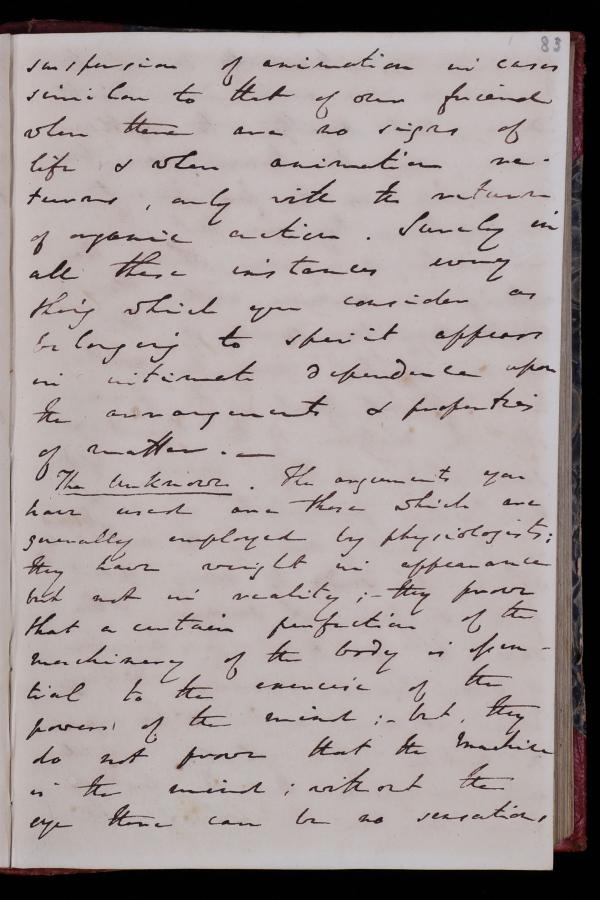 83
suspension of animation in cases
similar to that of our friend
when there are no signs of
life & when animation re-
turns, only with the return
of organic action. Surely in
all these instances every
thing which you consider as
belonging to spirit appears
in intimate dependence upon
the arrangements & properties
of matter. —
The Unknown. The arguments you
have used are those which are
generally employed by physiologists;
they have weight in appearance
but not in reality; – they prove
that a certain perfection of the
machinery of the body is essen-
tial to the exercise of the
powers of the mind; – but, they
do not prove that the machine
is the mind; without the
eye there can be no sensations